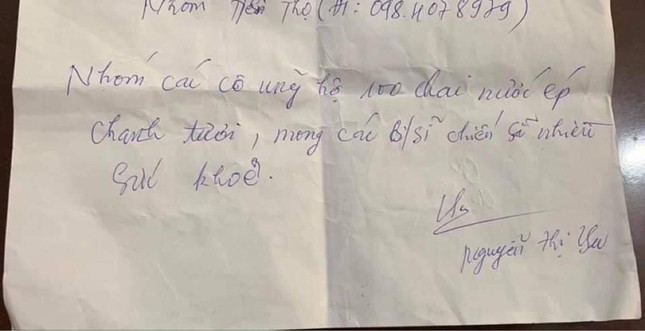 Nhóm Tiến Thọ (ĐT: 098.4078979)
Nhóm các cô ủng hộ 100 chai nước ép
chanh tươi, mong các B/sĩ chiến sĩ nhiều
sức khoẻ.
Nguyễn Thị